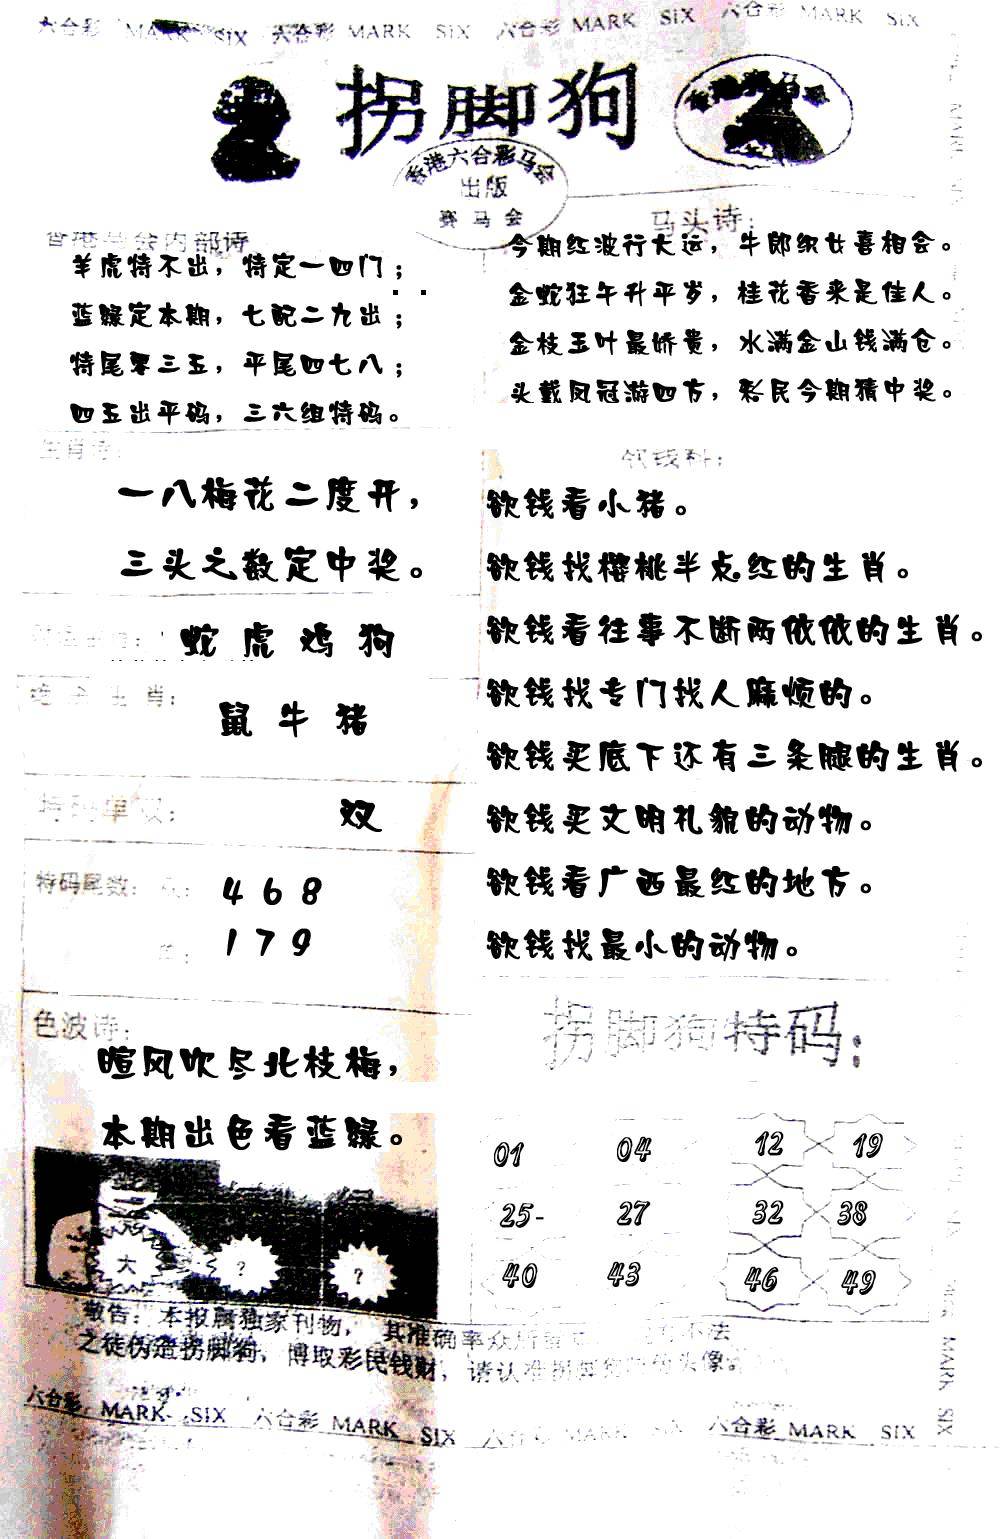 六合彩 MARK SIX 六合彩 MARK SIX 六合彩 MARK SIX 六合彩 MARK SIX
拐脚狗
香港六合彩马会
出版
赛马会
香港马会内部诗
羊虎特不出，特定一四门；
蓝绿定本期，七配二九出；
特尾零三五，平尾四七八；
四五出平码，三六组特码。
马头诗：
今期红波行大运，牛郎织女喜相会。
金蛇狂午升平岁，桂花香来是佳人。
金枝玉叶最娇贵，水满金山钱满仓。
头戴凤冠游四方，彩民今期猜中奖。
生肖诗：
一八梅花二度开，
三头之数定中奖。
蛇虎鸡狗
生肖：
鼠牛猪
特码单双：
双
特码尾数：
4 6 8
1 7 9
色波诗：
暄风吹尽北枝梅，
本期出色看蓝绿。
大 ? ?
欲钱料：
欲钱看小猪。
欲钱找樱桃半点红的生肖。
欲钱看往事不断两依依的生肖。
欲钱找专门找人麻烦的。
欲钱买底下还有三条腿的生肖。
欲钱买文明礼貌的动物。
欲钱看广西最红的地方。
欲钱找最小的动物。
拐脚狗特码：
01 04 12 19
25- 27 32 38
40 43 46 49
敬告：本报属独家刊物，其准确率众所 不法
之徒伪造拐脚狗，博取彩民钱财，请认准拐脚狗 头像。
六合彩 MARK SIX 六合彩 MARK SIX 六合彩 MARK SIX 六合彩 MARK SIX
MARK SIX